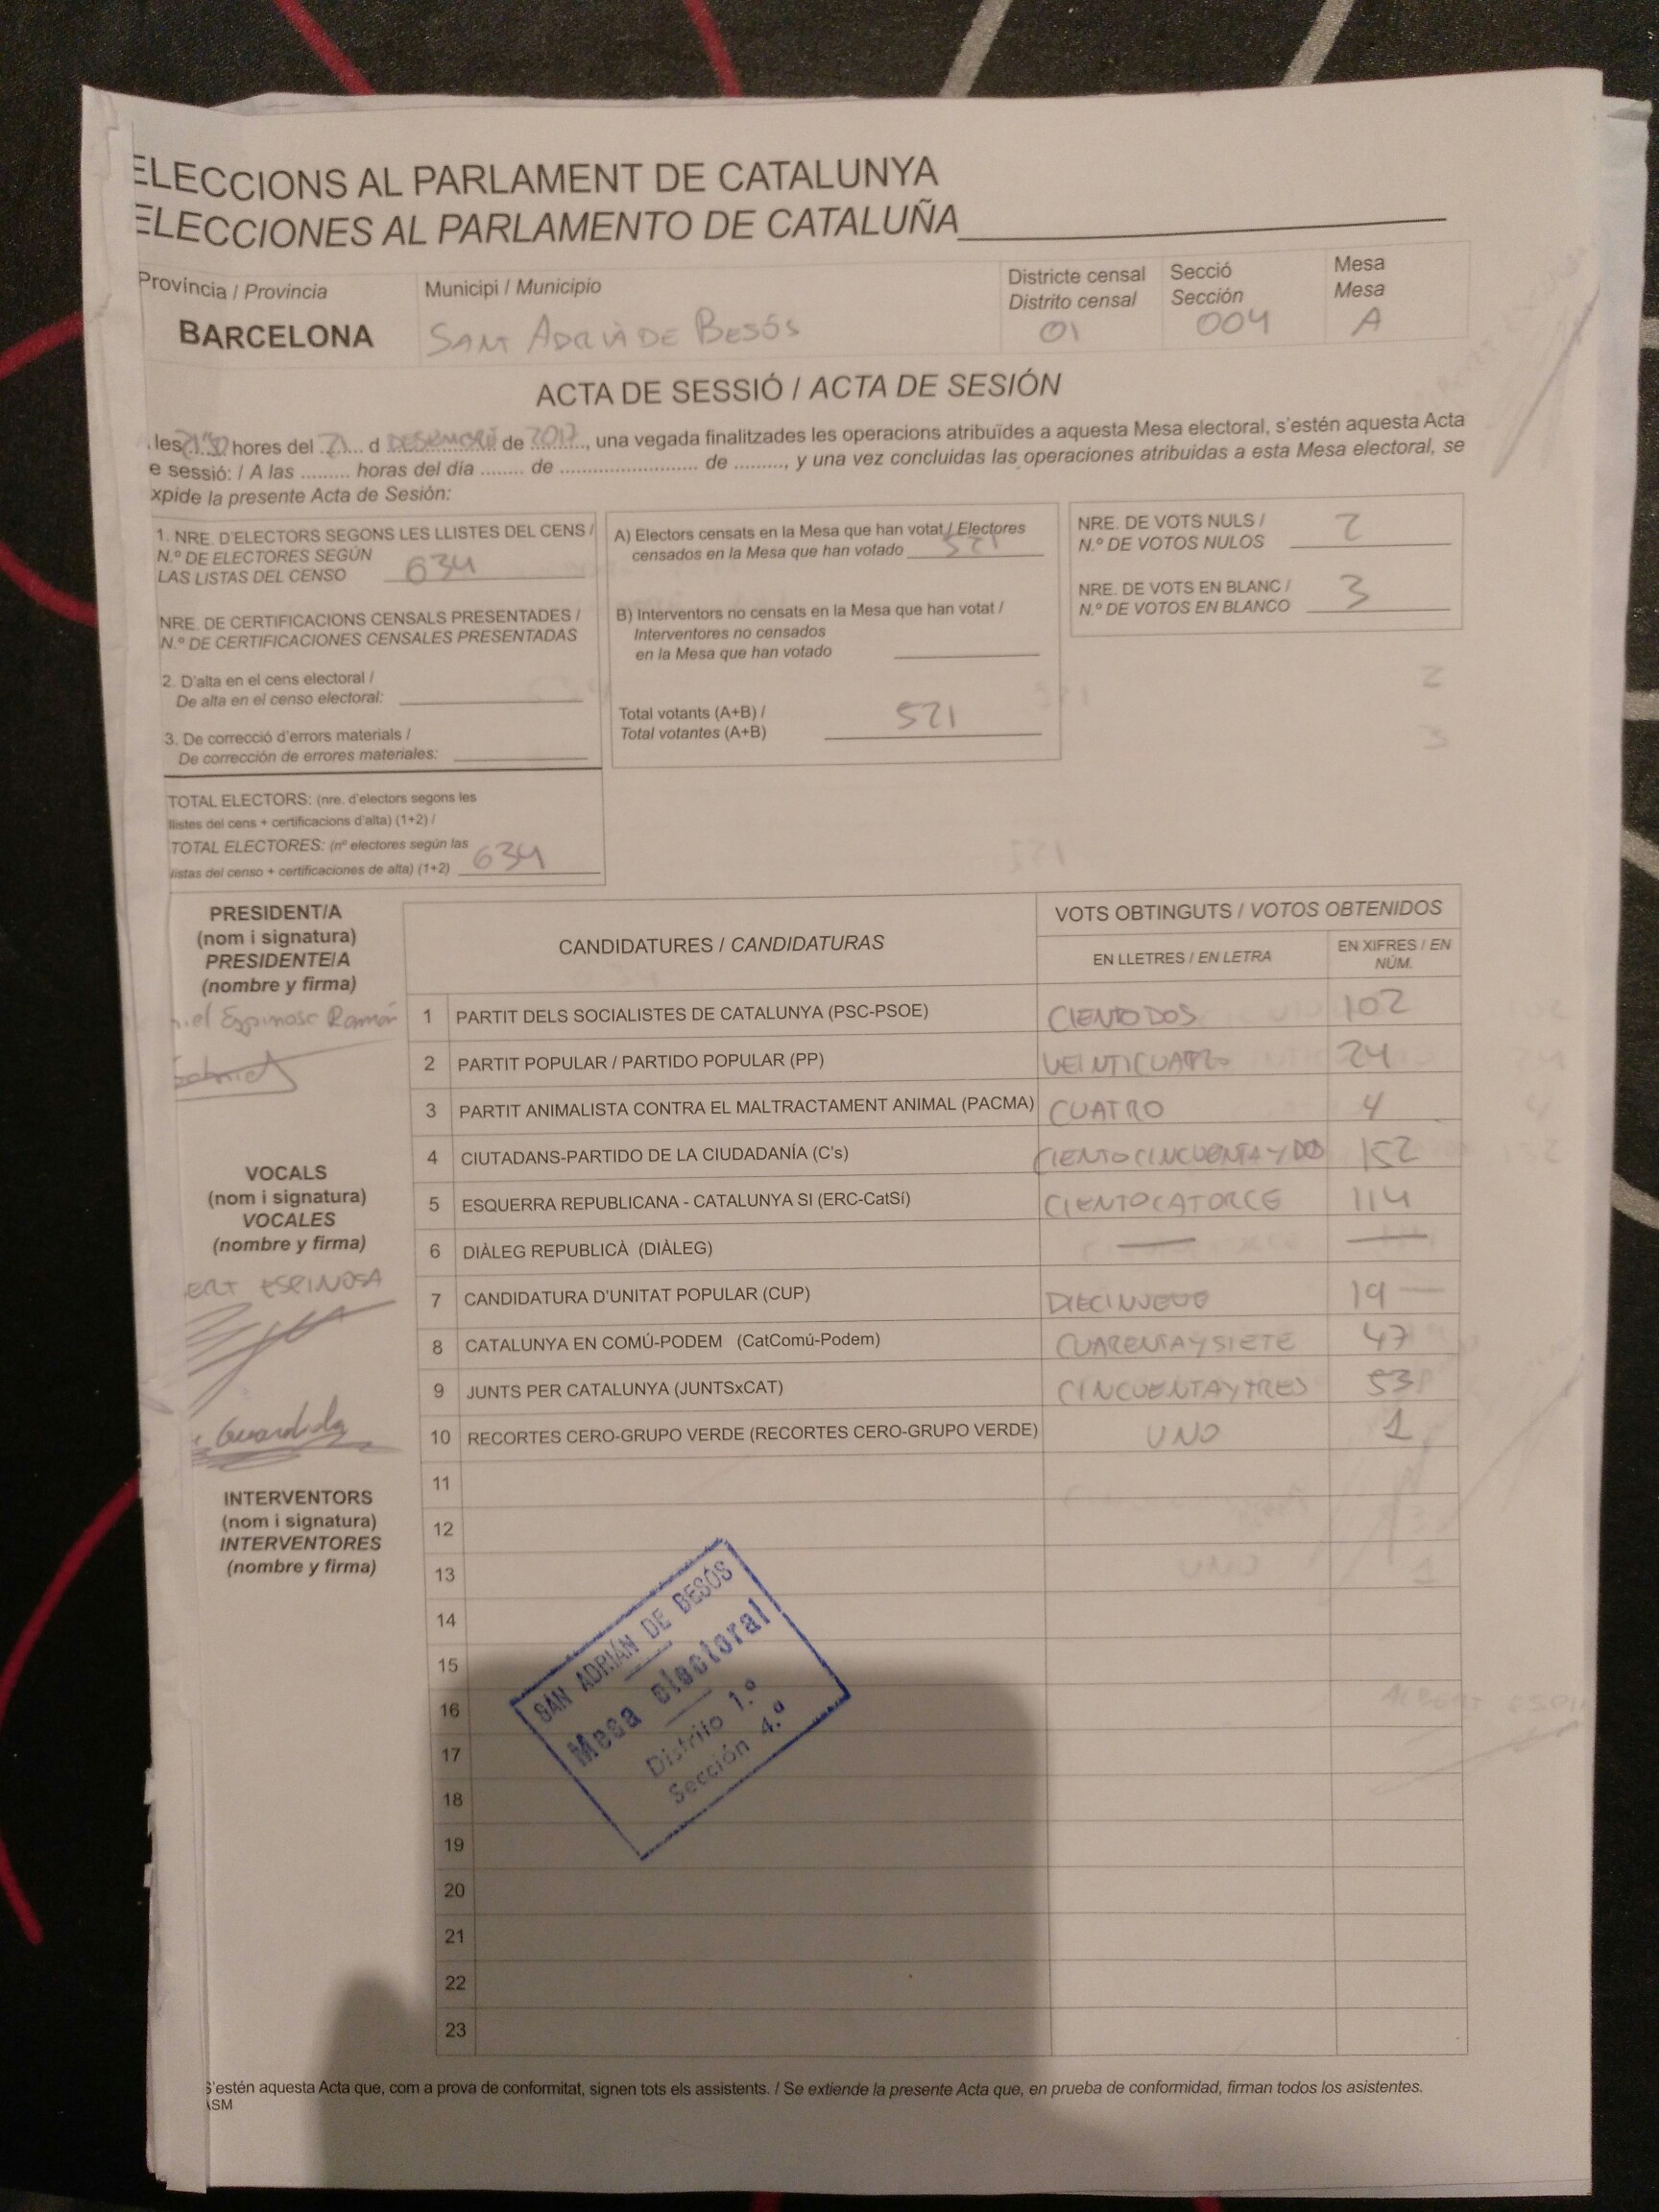 ELECCIONS AL PARLAMENT DE CATALUNYA
ELECCIONES AL PARLAMENTO DE CATALUÑA
Província / Provincia
BARCELONA
Municipi / Municipio
SANT ADRIÀ DE BESÓS
Districte censal
Distrito censal
01
Secció
Sección
004
Mesa
Mesa
A
ACTA DE SESSIÓ / ACTA DE SESIÓN
les 21'30 hores del 21 d DESEMBRE de 2017, una vegada finalitzades les operacions atribuïdes a aquesta Mesa electoral, s'estén aquesta Acta
e sessió: / A las ......... horas del día ........ de ........................ de ........., y una vez concluidas las operaciones atribuidas a esta Mesa electoral, se
xpide la presente Acta de Sesión:
1. NRE. D'ELECTORS SEGONS LES LLISTES DEL CENS /
N.º DE ELECTORES SEGÚN
LAS LISTAS DEL CENSO 634
NRE. DE CERTIFICACIONS CENSALS PRESENTADES /
N.º DE CERTIFICACIONES CENSALES PRESENTADAS
2. D'alta en el cens electoral /
De alta en el censo electoral:
3. De correcció d'errors materials /
De corrección de errores materiales:
TOTAL ELECTORS: (nre. d'electors segons les
llistes del cens + certificacions d'alta) (1+2) /
TOTAL ELECTORES: (nº electores según las
listas del censo + certificaciones de alta) (1+2) 634
A) Electors censats en la Mesa que han votat / Electores
censados en la Mesa que han votado 521
B) Interventors no censats en la Mesa que han votat /
Interventores no censados
en la Mesa que han votado
Total votants (A+B) /
Total votantes (A+B) 521
NRE. DE VOTS NULS /
N.º DE VOTOS NULOS 2
NRE. DE VOTS EN BLANC /
N.º DE VOTOS EN BLANCO 3
PRESIDENT/A
(nom i signatura)
PRESIDENTE/A
(nombre y firma)
iel Espinosa Ramón
VOCALS
(nom i signatura)
VOCALES
(nombre y firma)
ERT ESPINOSA
Guardida
INTERVENTORS
(nom i signatura)
INTERVENTORES
(nombre y firma)
CANDIDATURES / CANDIDATURAS
VOTS OBTINGUTS / VOTOS OBTENIDOS
EN LLETRES / EN LETRA
EN XIFRES / EN
NÚM.
1 PARTIT DELS SOCIALISTES DE CATALUNYA (PSC-PSOE) CIENTO DOS 102
2 PARTIT POPULAR / PARTIDO POPULAR (PP) VEINTICUATRO 24
3 PARTIT ANIMALISTA CONTRA EL MALTRACTAMENT ANIMAL (PACMA) CUATRO 4
4 CIUTADANS-PARTIDO DE LA CIUDADANÍA (C's) CIENTO CINCUENTA Y DOS 152
5 ESQUERRA REPUBLICANA - CATALUNYA SI (ERC-CatSí) CIENTO CATORCE 114
6 DIÀLEG REPUBLICÀ (DIÀLEG) — —
7 CANDIDATURA D'UNITAT POPULAR (CUP) DIECINUEVE 19 —
8 CATALUNYA EN COMÚ-PODEM (CatComú-Podem) CUARENTA Y SIETE 47
9 JUNTS PER CATALUNYA (JUNTSxCAT) CINCUENTA Y TRES 53
10 RECORTES CERO-GRUPO VERDE (RECORTES CERO-GRUPO VERDE) UNO 1
11
12
13
14
15
16
17
18
19
20
21
22
23
SAN ADRIÁN DE BESÓS
Mesa electoral
Distrito 1.º
Sección 4.ª
S'estén aquesta Acta que, com a prova de conformitat, signen tots els assistents. / Se extiende la presente Acta que, en prueba de conformidad, firman todos los asistentes.
ASM